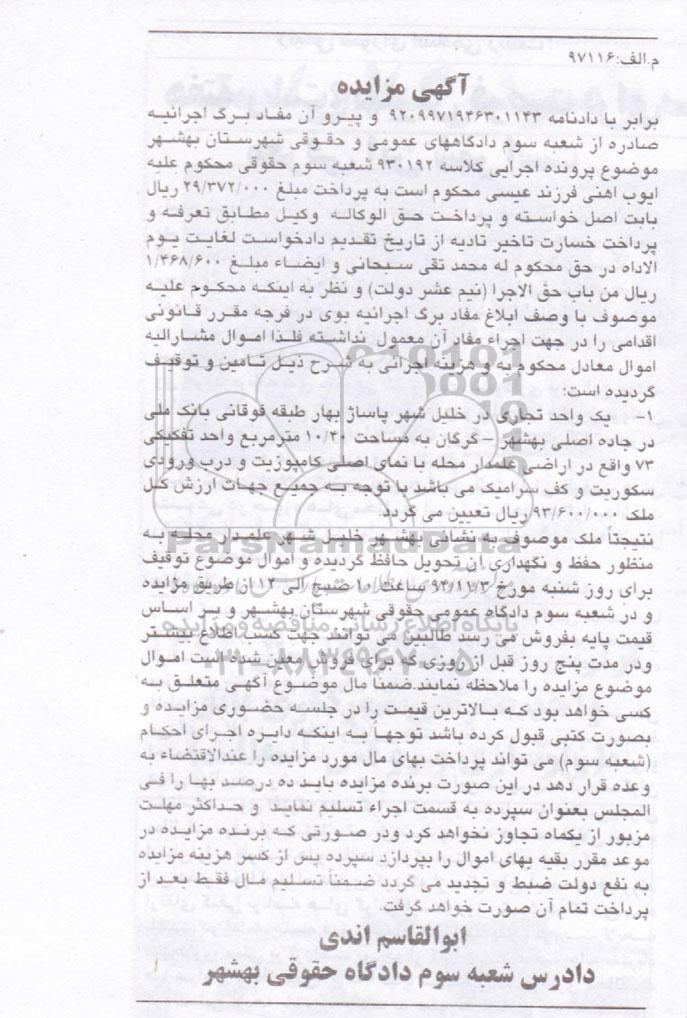 م.الف:۹۷۱۱۶
آگهی مزایده
برابر با دادنامه ۹۲۰۹۹۷۱۹۴۶۳۰۱۱۴۳ و پیرو آن مفاد برگ اجرائیه
صادره از شعبه سوم دادگاههای عمومی و حقوقی شهرستان بهشهر
موضوع پرونده اجرایی کلاسه ۹۳۰۱۹۲ شعبه سوم حقوقی محکوم علیه
ایوب اهنی فرزند عیسی محکوم است به پرداخت مبلغ ۲۹/۳۷۲/۰۰۰ ریال
بابت اصل خواسته و پرداخت حق الوکاله وکیل مطابق تعرفه و
پرداخت خسارت تاخیر تادیه از تاریخ تقدیم دادخواست لغایت یوم
الاداه در حق محکوم له محمد تقی سبحانی و ایضاء مبلغ ۱/۴۶۸/۶۰۰
ریال من باب حق الاجرا (نیم عشر دولت) و نظر به اینکه محکوم علیه
موصوف با وصف ابلاغ مفاد برگ اجرائیه بوی در فرجه مقرر قانونی
اقدامی را در جهت اجراء مفاد آن معمول نداشته فلذا اموال مشارالیه
اموال معادل محکوم به و هزینه اجرائی به شرح ذیل تامین و توقیف
گردیده است:
۱- یک واحد تجاری در خلیل شهر پاساژ بهار طبقه فوقانی بانک ملی
در جاده اصلی بهشهر – گرگان به مساحت ۱۰/۴۰ مترمربع واحد تفکیکی
۷۳ واقع در اراضی علمدار محله با نمای اصلی کامپوزیت و درب ورودی
سکوریت و کف سرامیک می باشد با توجه به جمیع جهات ارزش کل
ملک ۹۳/۶۰۰/۰۰۰ ریال تعیین می گردد.
نتیجتاً ملک موصوف به نشانی بهشهر خلیل شهر علمدار محله به
منظور حفظ و نگهداری آن تحویل حافظ گردیده و اموال موضوع توقیف
برای روز شنبه مورخ ۹۴/۱۱/۳ ساعت ۱۰ صبح الی ۱۲ از طریق مزایده
و در شعبه سوم دادگاه عمومی حقوقی شهرستان بهشهر و بر اساس
قیمت پایه بفروش می رسد طالبین می توانند جهت کسب اطلاع بیشتر
ودر مدت پنج روز قبل از روزی که برای فروش معین شده است اموال
موضوع مزایده را ملاحظه نمایند.ضمنا مال موضوع آگهی متعلق به
کسی خواهد بود که بالاترین قیمت را در جلسه حضوری مزایده و
بصورت کتبی قبول کرده باشد توجها به اینکه دایره اجرای احکام
(شعبه سوم) می تواند پرداخت بهای مال مورد مزایده را عندالاقتضاء به
وعده قرار دهد در این صورت برنده مزایده باید ده درصد بها را فی
المجلس بعنوان سپرده به قسمت اجراء تسلیم نماید و حداکثر مهلت
مزبور از یکماه تجاوز نخواهد کرد ودر صورتی که برنده مزایده در
موعد مقرر بقیه بهای اموال را بپردازد سپرده پس از کسر هزینه مزایده
به نفع دولت ضبط و تجدید می گردد ضمناً تسلیم مال فقط بعد از
پرداخت تمام آن صورت خواهد گرفت.
ابوالقاسم اندی
دادرس شعبه سوم دادگاه حقوقی بهشهر
ParsNamadData
پایگاه اطلاع رسانی مناقصه و مزایده
۰۲۱-۸۸۳۴۹۶۷۰-۵